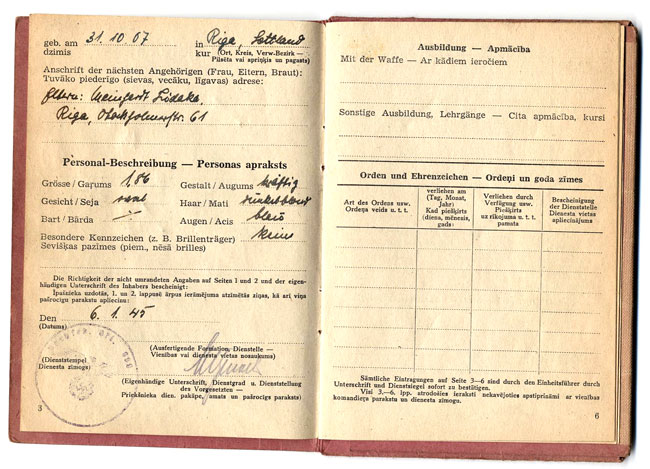 geb. am 31.10.07 in Riga, Lettland
dzimis kur (Ort, Kreis, Verw.-Bezirk — Pilsēta vai apriņķis un pagasts)
Anschrift der nächsten Angehörigen (Frau, Eltern, Braut):
Tuvāko piederīgo (sievas, vecāku, līgavas) adrese:
Eltern:
Riga, 61
Personal-Beschreibung — Personas apraksts
Grösse / Gaŗums 1,86 Gestalt / Augums kräftig
Gesicht / Seja oval Haar / Mati dunkelblond
Bart / Bārda — Augen / Acis blau
Besondere Kennzeichen (z. B. Brillenträger) keine
Sevišķas pazīmes (piem., nēsā brilles)
Die Richtigkeit der nicht umrandeten Angaben auf Seiten 1 und 2 und der eigen-
händigen Unterschrift des Inhabers bescheinigt:
Īpašnieka uzdotās, 1. un 2. lappusē ārpus ierāmējuma atzīmētās ziņas, kā arī viņa
pašrocīgu parakstu apliecinu:
Den 6.1.45
(Datums)
(Ausfertigende Formation, Dienstelle —
Vienības vai dienesta vietas nosaukums)
(Dienststempel
Dienesta zīmogs)
(Eigenhändige Unterschrift, Dienstgrad u. Dienststellung
des Vorgesetzten —
Priekšnieka dien. pakāpe, amats un pašrocīgs paraksts)
3
Ausbildung — Apmācība
Mit der Waffe — Ar kādiem ieročiem
Sonstige Ausbildung, Lehrgänge — Cita apmācība, kursi
Orden und Ehrenzeichen — Ordeņi un goda zīmes
Art des Ordens usw.
Ordeņa veids u. t. t.
verliehen am
(Tag, Monat,
Jahr)
Kad piešķirts
(diena, mēnesis,
gads)
Verliehen durch
Verfügung usw.
Piešķirts
uz rīkojuma u. t. t.
pamata
Bescheinigung
der Dienststelle
Dienesta vietas
apliecinājums
Sämtliche Eintragungen auf Seite 3—6 sind durch den Einheitsführer durch
Unterschrift und Dienstsiegel sofort zu bestätigen.
Visi 3.—6. lpp. atrodošies ieraksti nekavējoties apstiprināmi ar vienības
komandieŗa parakstu un dienesta zīmogu.
6